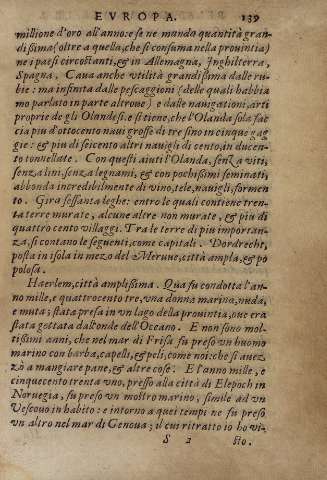 EVROPA. 139
millione d'oro all'anno: e se ne manda quantità gran-
dissima (oltre a quella, che si consuma nella prouintia)
ne i paesi circostanti, & in Allemagna, Inghilterra,
Spagna, Caua anche vtilità grandissima dalle ru-
bie: ma infinita dalle pescaggioni (delle quali habbia
mo parlato in parte altroue) e dalle nauigationi, arti
proprie de gli Olandesi. e si tiene, che l'Olanda sola fac
cia piu d'ottocento naui grosse di tre sino in cinque gag
gie: & piu di seicento altri nauigli di cento, in ducen-
to tonnellate. Con questi aiuti l'Olanda, senza viti,
senza lini, senza legnami, & con pochissimi seminati,
abbonda incredibilmente di vino, tele, nauigli, formen
to. Gira sessanta leghe: entro le quali contiene tren-
ta terre murate, alcune altre non murate, & piu di
quattro cento villaggi. Tra le terre di piu importan-
za, si contano le seguenti, come capitali. Dordrecht,
posta in isola in mezo del Meruue, città ampla, & po
polosa.
Haerlem, città amplissima. Qua fu condotta l'an-
no mille, e quattrocento tre, vna donna marina, nuda,
e muta; stata presa in vn lago della prouintia, oue era
stata gottata dall'onde dell'Oceano. E non sono mol-
tissimi anni, che nel mar di Frisa fu preso vn huomo
marino con barba, capelli, & peli, come noi: che si auez-
zò a mangiare pane, & altre cose. E l'anno mille, e
cinquecento trenta vno, presso alla città di Elepoch in
Noruegia, fu preso vn mostro marino, simile ad vn
Vescouo in habito: e intorno a quei tempi ne fu preso
vn altro nel mar di Genoua; il cui ritratto io ho vi-
S 2 sto.